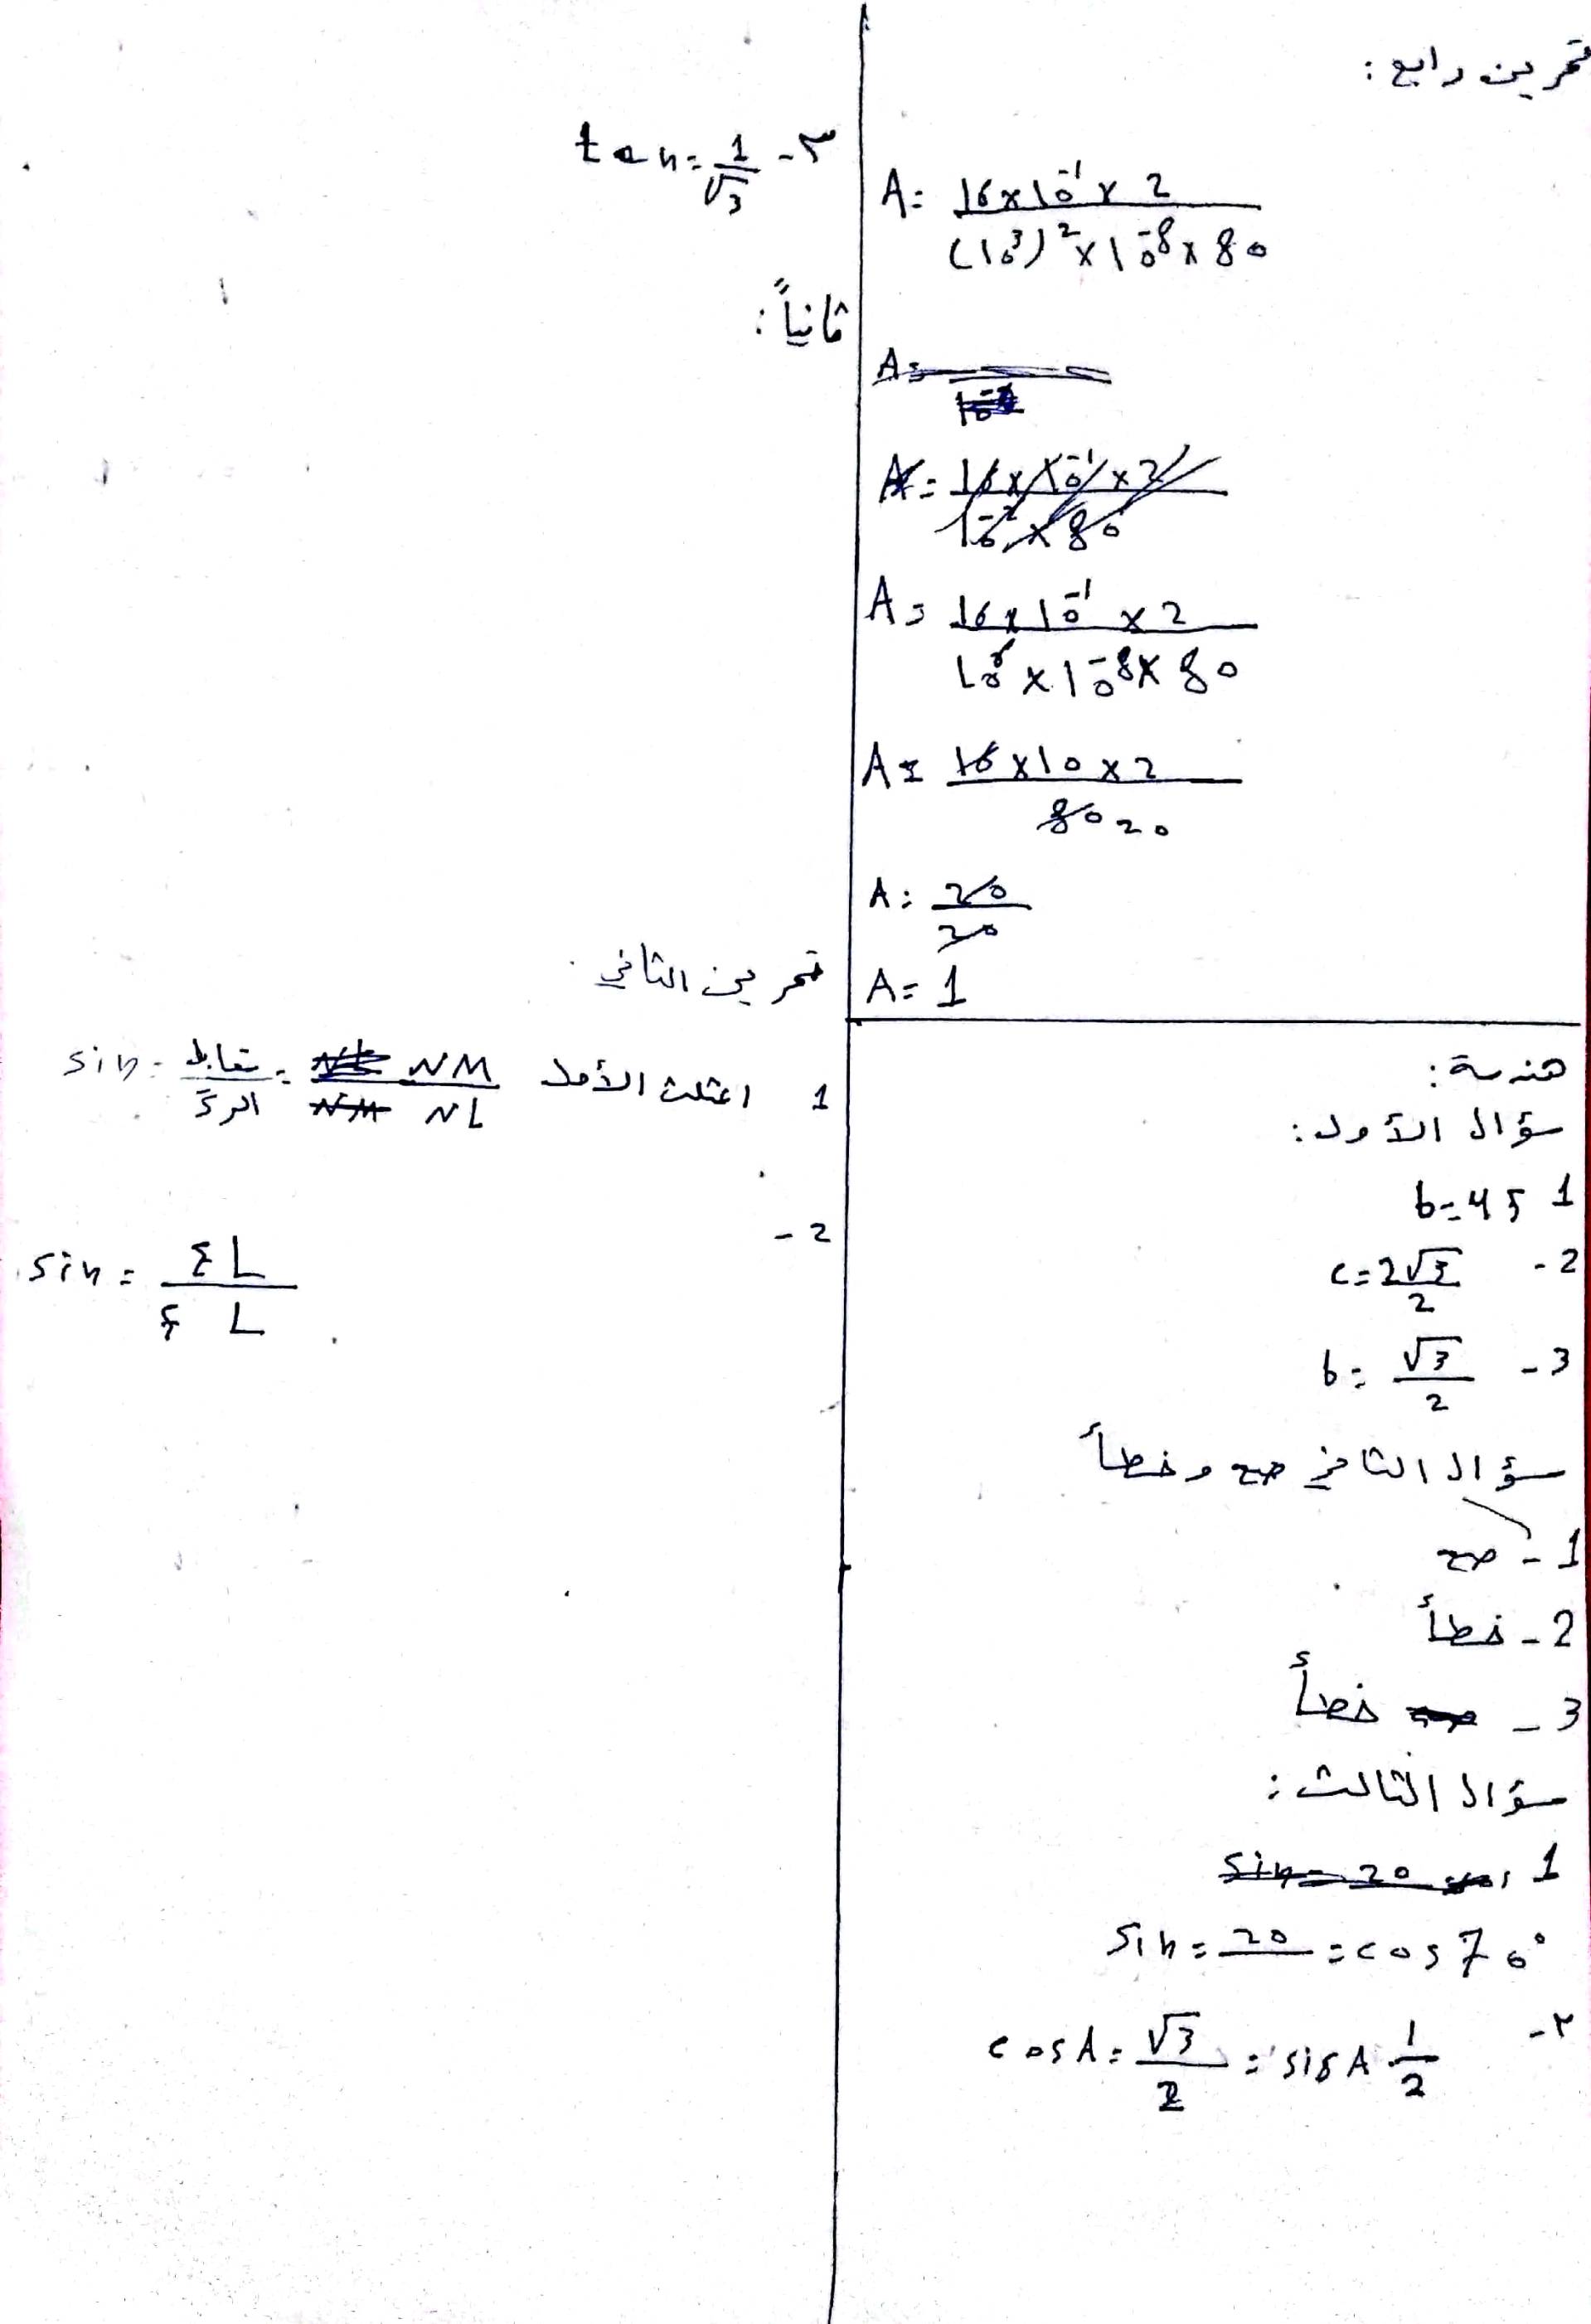 تمرين رابع :
A = 16 x 10⁻¹ x 2 / (10³)² x 10⁻⁸ x 80
A = 16 x 10⁻¹ x 2 / 10⁻² x 80
A = 16 x 10⁻¹ x 2 / 10⁶ x 10⁻⁸ x 80
A = 16 x 10 x 2 / 80 20
A = 20 / 20
A = 1
هندسة :
سؤال الأول :
1 b = 45
2 - c = 2√3 / 2
3 - b = √3 / 2
سؤال الثاني صح وخطأ
1 - صح
2 - خطأ
3 - خطأ
سؤال الثالث :
1 sin = 20
sin = 20 = cos 70°
٢- cos A = √3 / 2 = sin A 1 / 2
٣- tan = 1 / √3
ثانياً :
تمرين الثاني
1 المثلث الأول NM / NL = مقابل / الوتر = sin
2 -
sin = L / L